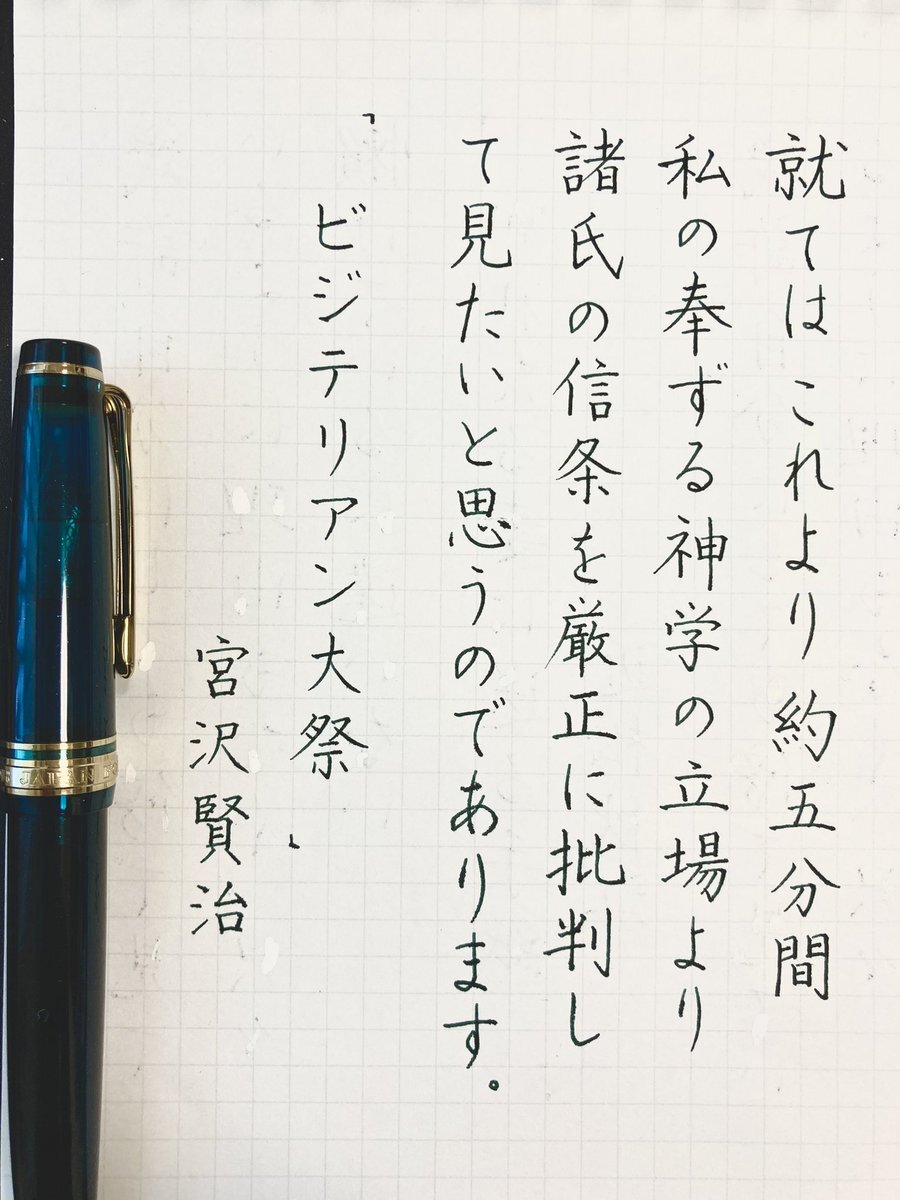 就てはこれより約五分間
私の奉ずる神学の立場より
諸氏の信条を厳正に批判し
て見たいと思うのであります。
「ビジテリアン大祭」
宮沢賢治
JAPAN